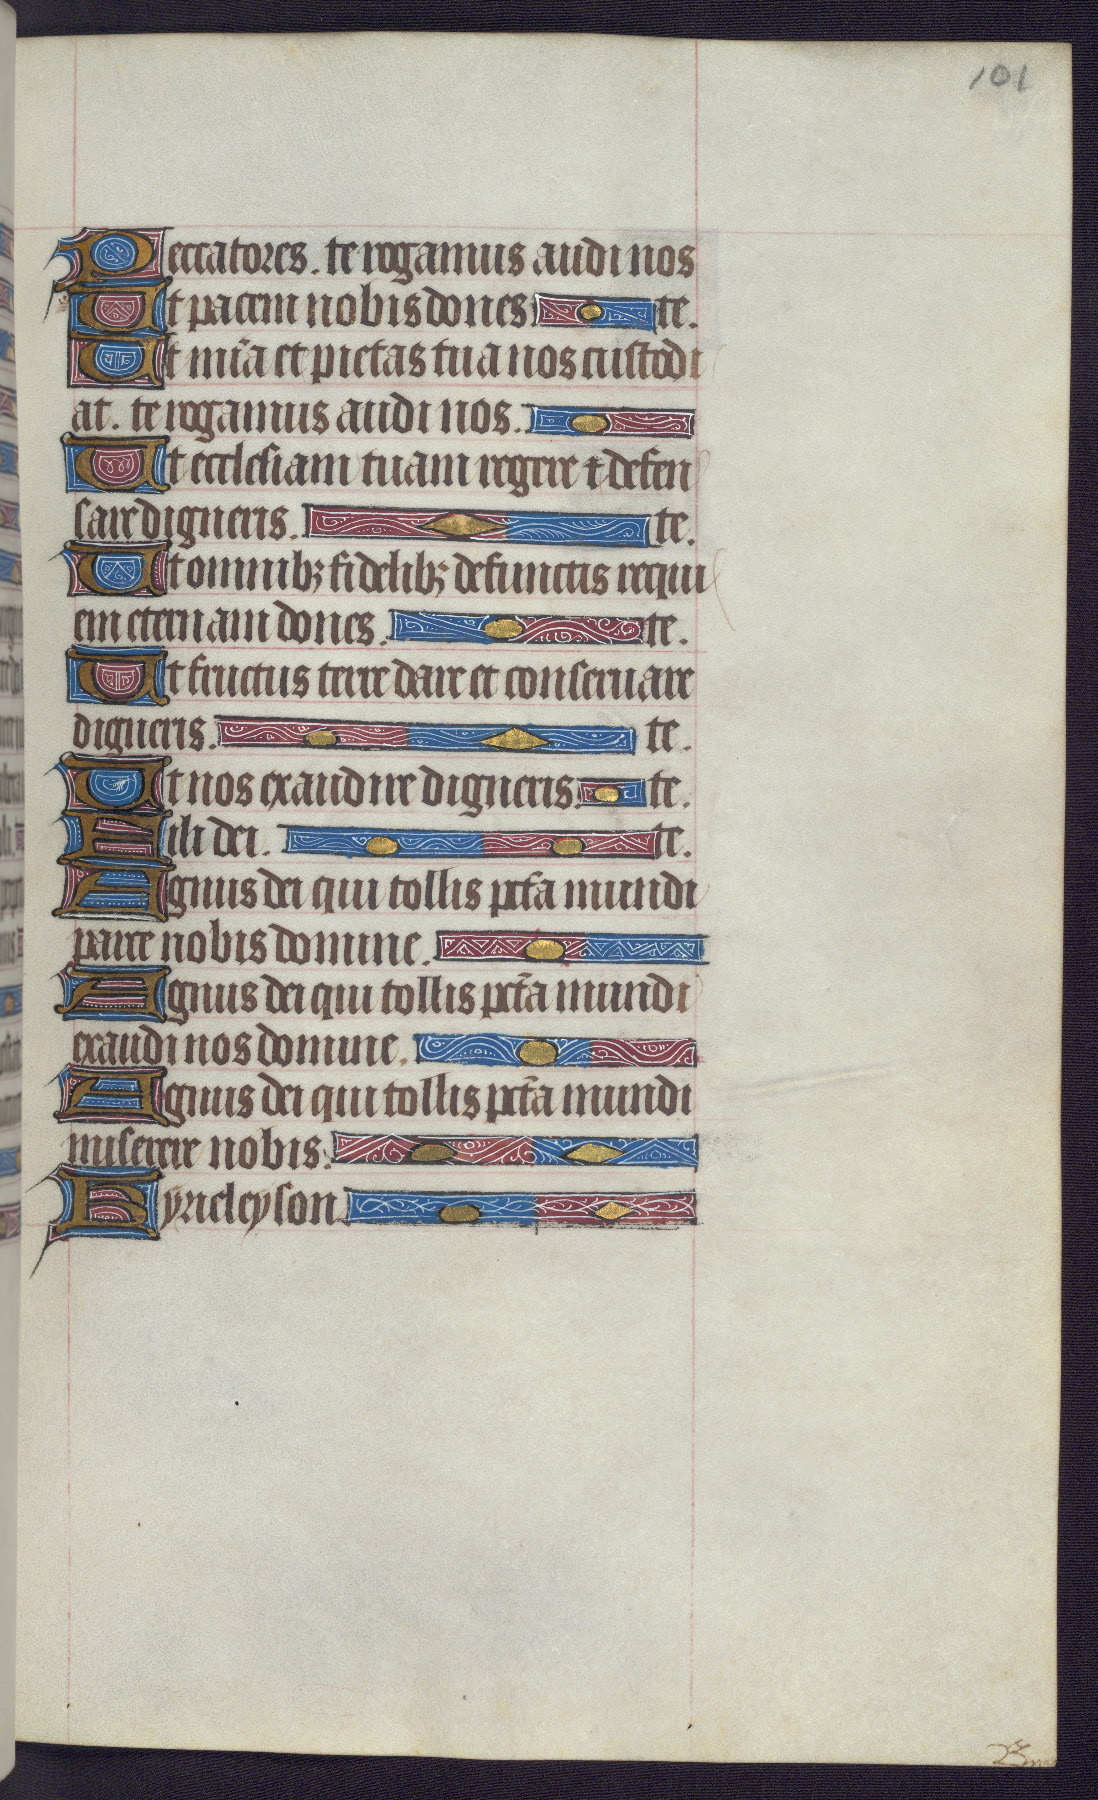 101
Peccatores. te rogamus audi nos
Ut pacem nobis dones te.
Ut mīa et pietas tua nos custodi
at. te rogamus audi nos.
Ut ecclesiam tuam regere ⁊ defen
sare digneris. te.
Ut omnibꝫ fidelibꝫ defunctis requi
em eternam dones. te.
Ut fructus terre dare et conseruare
digneris. te.
Ut nos exaudire digneris. te.
Fili dei. te.
Agnus dei qui tollis pctā mundi
parce nobis domine.
Agnus dei qui tollis pctā mundi
exaudi nos domine.
Agnus dei qui tollis pctā mundi
miserere nobis.
Kyrieleyson